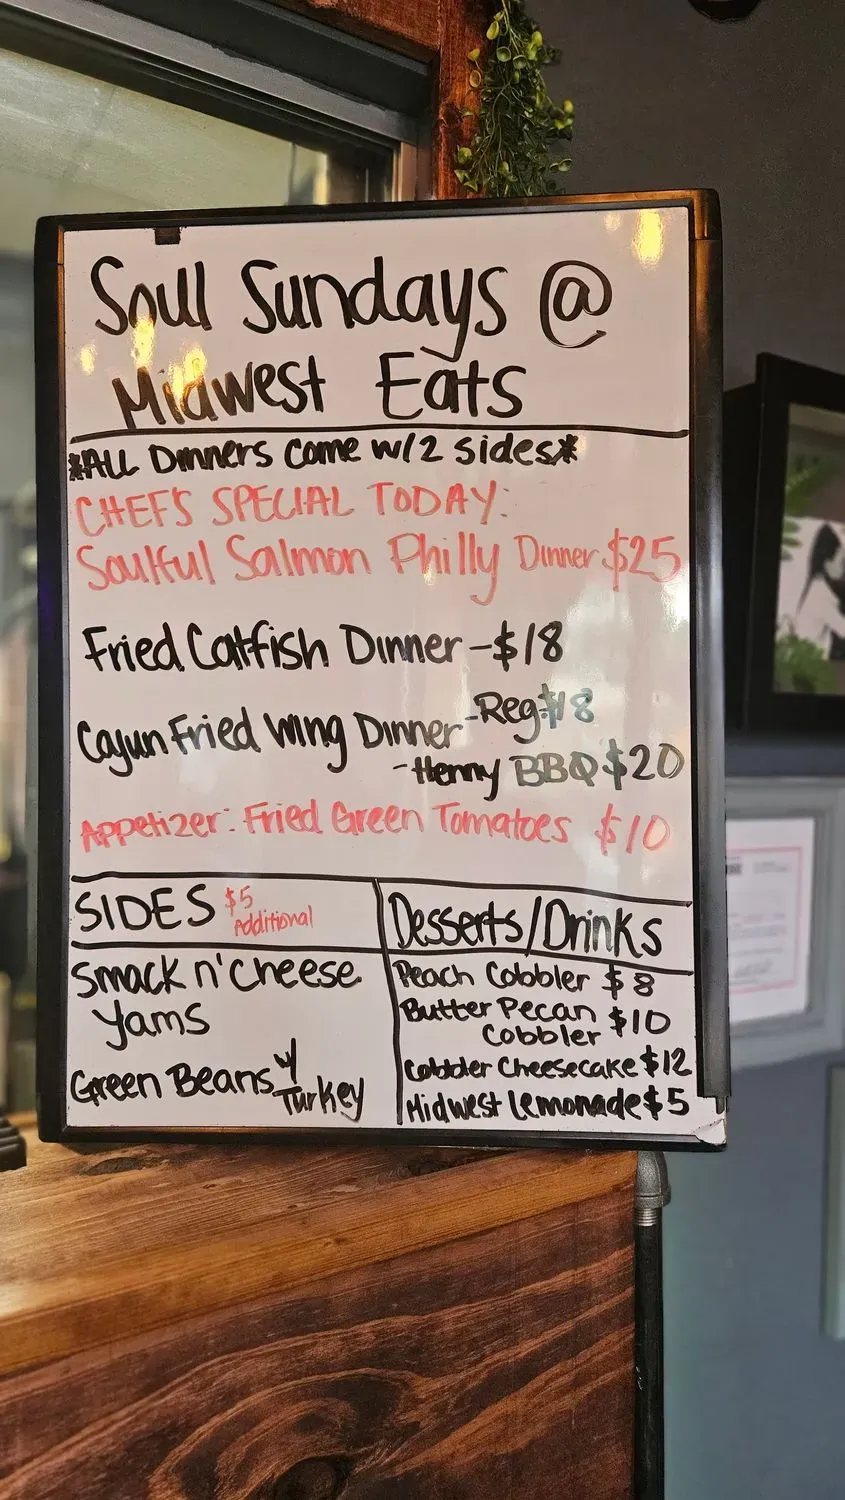 Soul Sundays @
Midwest Eats
*ALL Dinners Come w/2 sides*
CHEF'S SPECIAL TODAY:
Soulful Salmon Philly Dinner $25
Fried Catfish Dinner - $18
Cajun Fried Wing Dinner - Reg $18
- Henny BBQ $20
Appetizer: Fried Green Tomatoes $10
SIDES $5 Additional
Smack n' Cheese
Yams
Green Beans w/ Turkey
Desserts/Drinks
Peach Cobbler $8
Butter Pecan
Cobbler $10
Cobbler Cheesecake $12
Midwest Lemonade $5